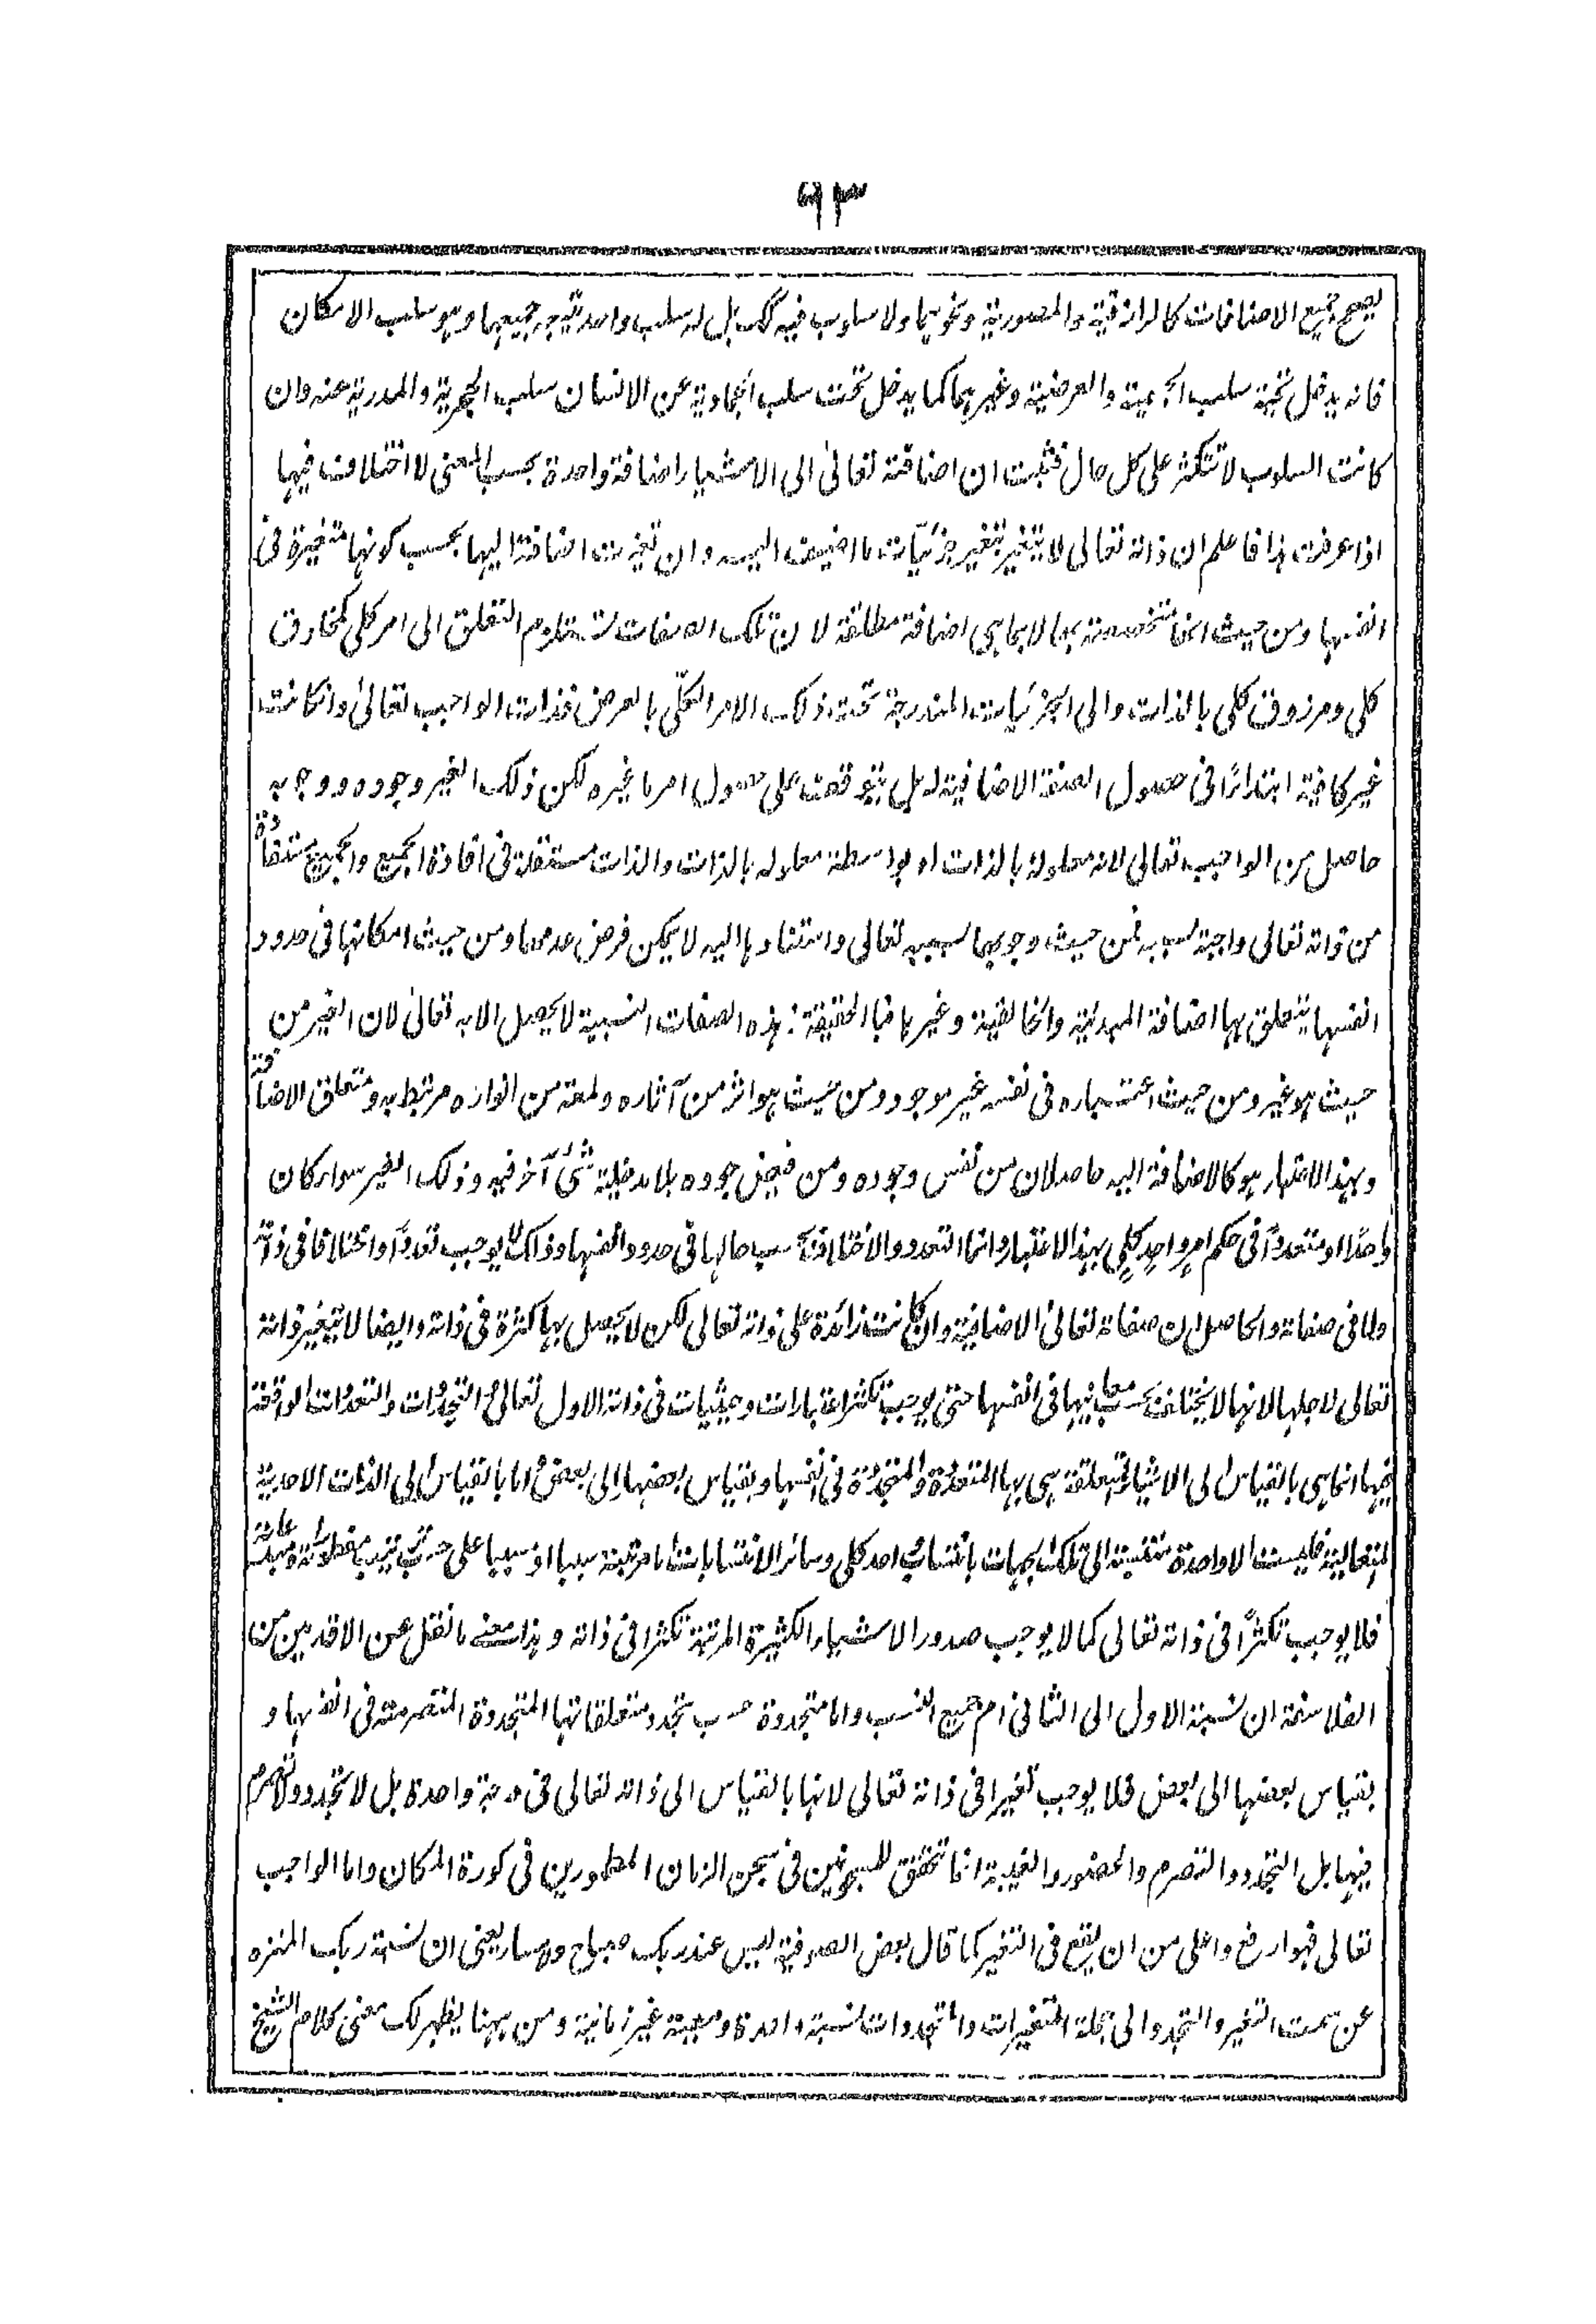 ٩٣
يصح جميع الاضافات كالرازقية والمصورية ونحوهما ولا سلوب فيه كك بل له سلب واحد يتبعه جميعها وهو سلب الامكان
فانه يدخل تحته سلب الجسمية والعرضية وغيرهما كما يدخل تحت سلب الجمادية عن الانسان سلب الحجرية والمدرية عنه وان
كانت السلوب لا تتكثر على كل حال فثبت ان اضافته تعالى الى الاشياء اضافة واحدة بحسب المعنى لا اختلاف فيها
اذا عرفت هذا فاعلم ان ذاته تعالى لا يتغير بتغير جزئيات ما اضيفت اليه وان تغيرت اضافته اليها بحسب كونها متغيرة فى
انفسها ومن حيث انها متخصصة بها لا بما هى اضافة مطلقة لان تلك الصفات تستلزم التعلق الى امر كلى كمخلوق
كلى ومرزوق كلى بالذات والى الجزئيات المندرجة تحت ذلك الامر الكلّى بالعرض فذات الواجب تعالى وانكانت
غير كافية ابتداءً فى حصول الصفة الاضافية له بل يتوقف على حصول امر ما غيره لكن ذلك الغير وجوده ووجوبه
حاصل من الواجب تعالى لانه معلوله بالذات او بواسطة معلوله بالذات والذات مستقلة فى افادة الجميع والجميع مستفادة
من ذاته تعالى واجبة بسببه فمن حيث وجوبها بسببه تعالى واستنادها اليه لا يمكن فرض عدمها ومن حيث امكانها فى حدود
انفسها يتعلق بها اضافة المبدئية والخالقية وغيرها فبالحقيقة هذه الصفات النسبية لا يحصل الا به تعالى لان الغير من
حيث هو غير ومن حيث اعتباره فى نفسه غير موجود ومن حيث هو اثر من آثاره ولمعة من انواره مرتبط به ومتعلق الاضافة
وبهذا الاعتبار هو كالاضافة اليه حاصلان من نفس وجوده ومن فيض جوده بلا مدخلية شئ آخر فيه وذلك الغير سواء كان
واحدًا او متعددًا فى حكم امرٍ واحدٍ كلىٍ بهذا الاعتبار وانما التعدد والاختلاف بحسب حالها فى حدود انفسها وذلك لا يوجب تعددًا واختلافا فى ذاته
ولا فى صفاته والحاصل ان صفاته تعالى الاضافية وان كانت زائدة على ذاته تعالى لكن لا يحصل بها كثرة فى ذاته وايضا لا يتغير ذاته
تعالى لاجلها لانها لا يختلف بحسب معانيها فى انفسها حتى يوجب تكثر اعتبارات وحيثيات فى ذاته الاول تعالى والتجددات والتعددات الواقعة
فيها انما هى بالقياس الى الاشياء المتعلقة هى بها المتعددة والمتجددة فى انفسها وبقياس بعضها الى بعض واما بالقياس الى الذات الاحدية
المتعالية فليست الا واحدة منتسبة الى تلك الجهات بانتساب احد كلى وسائر الانتسابات مترتبة سببا او سببيا على حسب ترتيب
فلا يوجب تكثرًا فى ذاته تعالى كما لا يوجب صدور الاشياء الكثيرة المرتبة تكثرا فى ذاته وهذا معنى ما نقل عن الاقدمين من
الفلاسفة ان نسبة الاول الى الثانى ام جميع النسب واما متجددة حسب تجدد متعلقاتها المتجددة المتصرمة فى انفسها و
بقياس بعضها الى بعض فلا يوجب تغيرا فى ذاته تعالى لانها بالقياس الى ذاته تعالى فى درجة واحدة بل لا تجدد ولا تصرم
فيها بل التجدد والتصرم والحضور والغيبة انما تتحقق للمسجونين فى سجن الزمان المطمورين فى كورة المكان واما الواجب
تعالى فهو ارفع واعلى من ان يقع فى التغير كما قال بعض الصوفية ليس عند ربك صباح ولا مساء يعنى ان نسبة ربك المنزه
عن سمت التغير والتجدد الى جملة المتغيرات والمتجددات نسبة واحدة ومعية غير زمانية ومن ههنا يظهر لك معنى كلام الشيخ